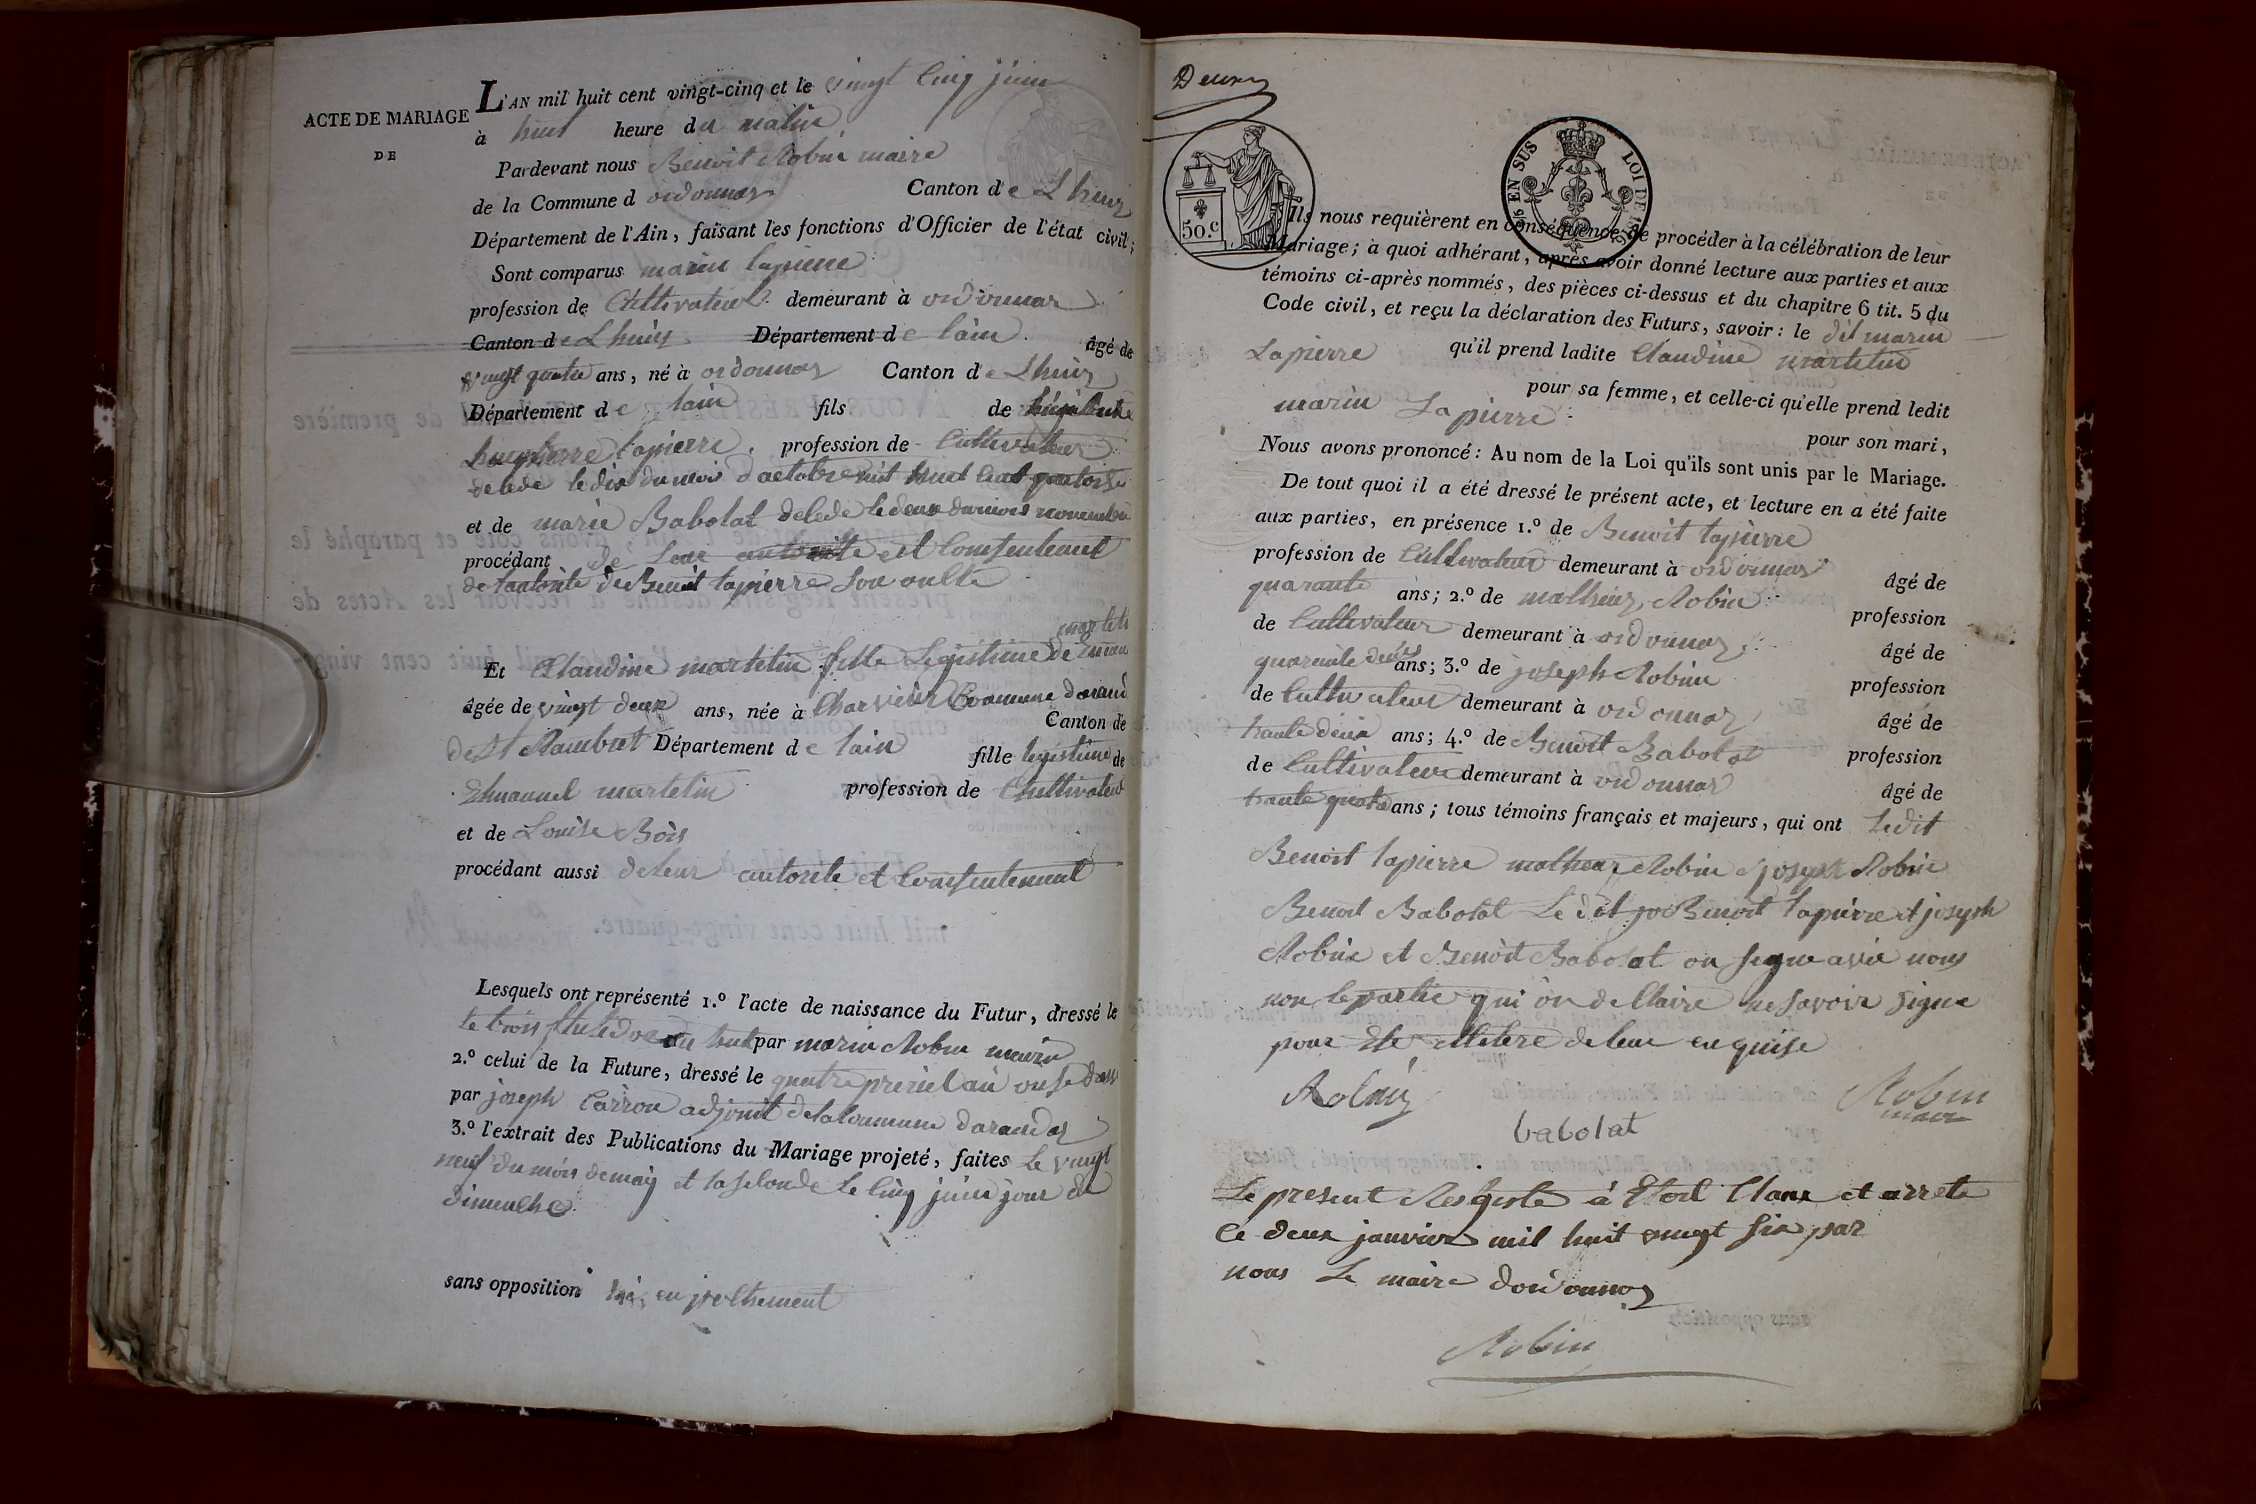 ACTE DE MARIAGE
DE
L'AN mil huit cent vingt-cinq et le vingt cinq juin
à huit heure du matin
Pardevant nous Benoit Robin maire
de la Commune d ordonnaz Canton de Lhuiz
Département de l'Ain, faisant les fonctions d'Officier de l'état civil;
Sont comparus marin lapierre
profession de Cultivateur demeurant à ordonnaz
Canton de Lhuis Département de lain âgé de
vingt quatre ans, né à ordonnaz Canton de Lhuiz
Département de lain fils de
lapierre profession de Cultivateur
decede le dix du mois d'octobre mil huit cent quatorze
et de marie Babolat decede le deux du mois novembre
procédant de leur autorite et Consentement
de lautorite de Benoit lapierre son oncle
martetin
Et Claudine martetin fille Legistime de
âgée de vingt deux ans, née à Charvieux Commune darand
Canton de
de St Rambert Département de lain fille legistime de
Ehmanuel martetin profession de Chultivateur
et de Louise Bois
procédant aussi de leur autorite et Consentement
Lesquels ont représenté 1.º l'acte de naissance du Futur, dressé le
le trois fructidor an huit par marin Robin mairie
2.º celui de la Future, dressé le quatre prerial an onse
par joseph Carron adjoint de la Commune darandas
3.º l'extrait des Publications du Mariage projeté, faites Le vingt
neuf du mois de may et la seconde Le cinq juin jour de
dimenche
sans opposition ni en pechement
Deux
50.c
EN SUS
LOI DE 1816
Ils nous requièrent en conséquence de procéder à la célébration de leur
Mariage; à quoi adhérant, après avoir donné lecture aux parties et aux
témoins ci-après nommés, des pièces ci-dessus et du chapitre 6 tit. 5 du
Code civil, et reçu la déclaration des Futurs, savoir: le dit marin
Lapierre qu'il prend ladite Claudine martetin
pour sa femme, et celle-ci qu'elle prend ledit
marin Lapierre
pour son mari,
Nous avons prononcé: Au nom de la Loi qu'ils sont unis par le Mariage.
De tout quoi il a été dressé le présent acte, et lecture en a été faite
aux parties, en présence 1.º de Benoit lapierre
profession de Cultivateur demeurant à ordonnaz âgé de
quarante ans; 2.º de matheiuz Robin profession
de Cultivateur demeurant à ordonnaz âgé de
quarante deux ans; 3.º de joseph Robin profession
de Cultivateur demeurant à ordonnaz âgé de
trante deux ans; 4.º de Benoit Babolat profession
de Cultivateur demeurant à ordonnaz âgé de
trante quatre ans; tous témoins français et majeurs, qui ont Ledit
Benoit lapierre matheuz Robin joseph Robin
Benoit Babolat Le dit jo Benoit lapierre et joseph
Robin et Benoit Babolat on signe avec nous
non le partie qui on dellaire ne savoir signe
pour de leur en quise
Robin
Robin
maire
babolat
Le present Registe à Etoit Clans et arrete
Ce deux janvier mil huit vingt six par
nous Le maire dordonnaz
Robin